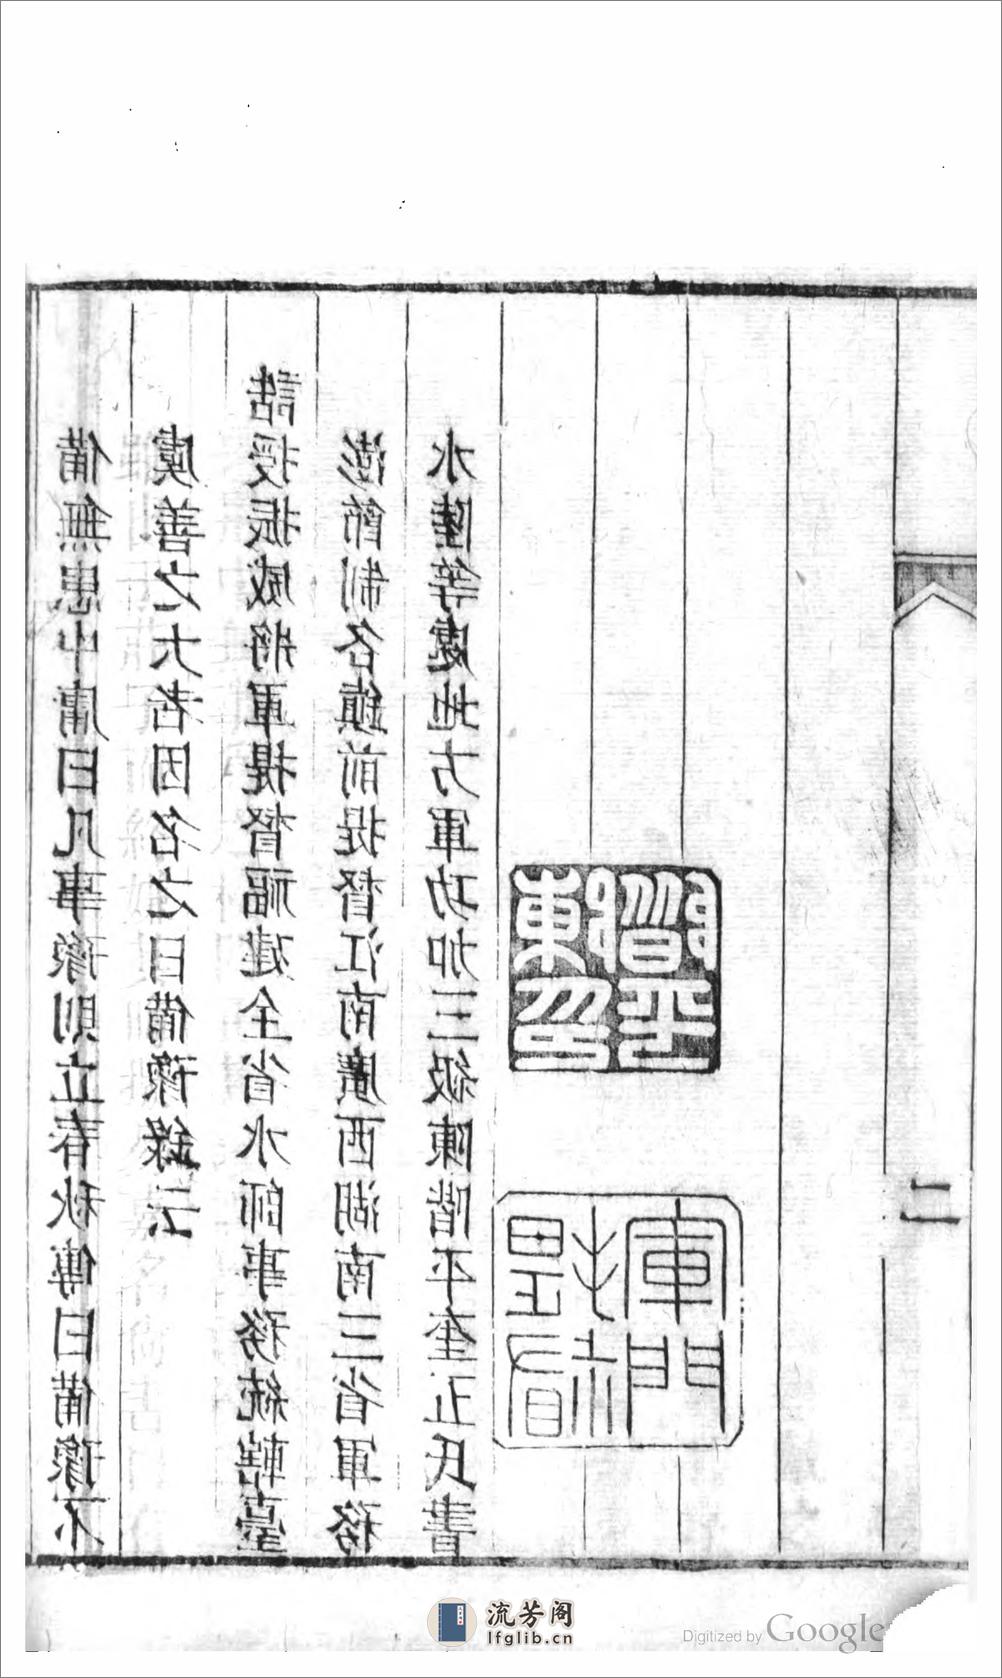 備無患中庸曰凡事豫則立春秋傳曰備豫不
虞善之大者因名之曰備豫錄云
誥授振威將軍提督福建全省水師事務統轄臺
澎節制各鎮前提督江南廣西湖南三省軍務
水陸等處地方軍功加三級陳階平奎五氏書
陳印階平
提督軍門
二
流芳阁
lfglib.cn
Digitized by Google